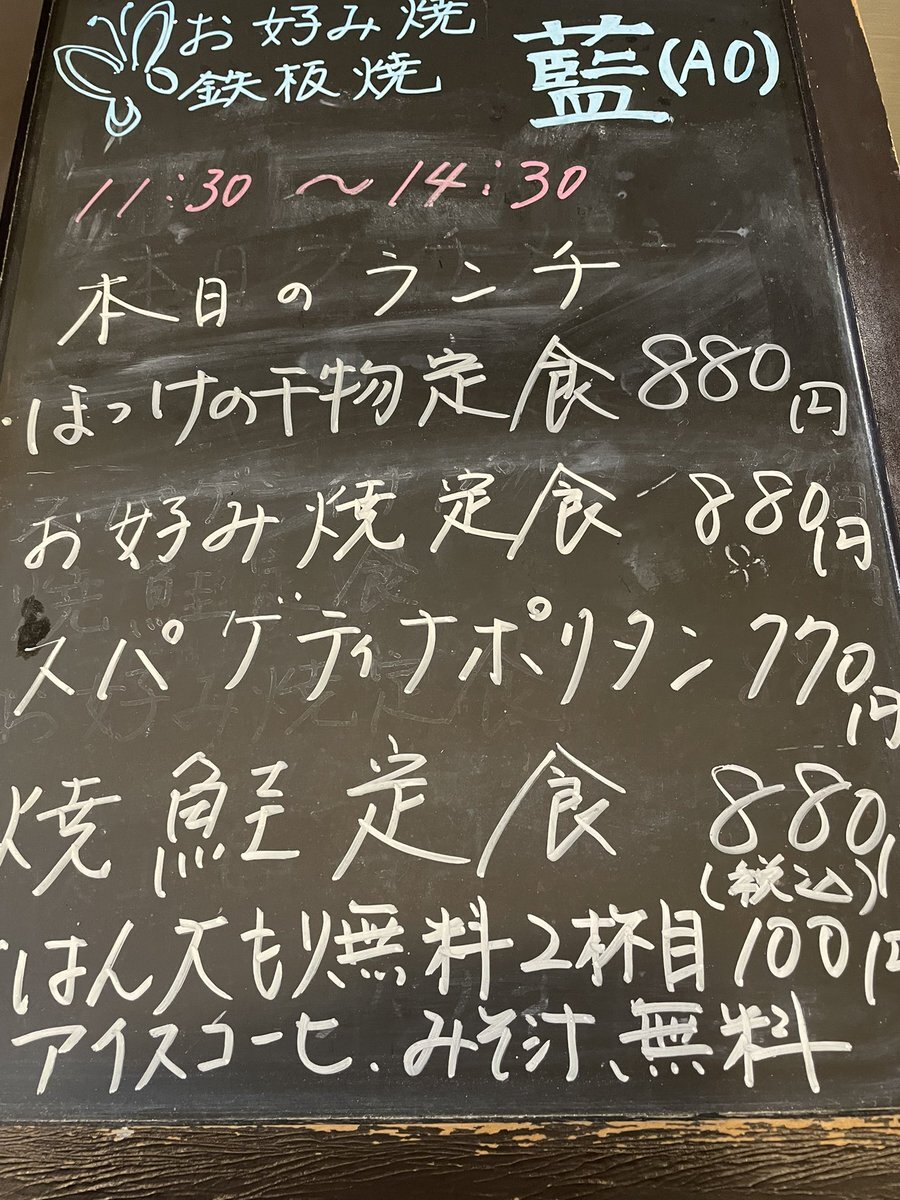 お好み焼
鉄板焼
藍(AO)
11:30 〜 14:30
本日のランチ
ほっけの干物定食 880円
お好み焼定食 880円
スパゲティナポリタン 770円
焼鮭定食 880円
(税込)
ごはん大もり無料 2杯目 100円
アイスコーヒ、みそ汁、無料